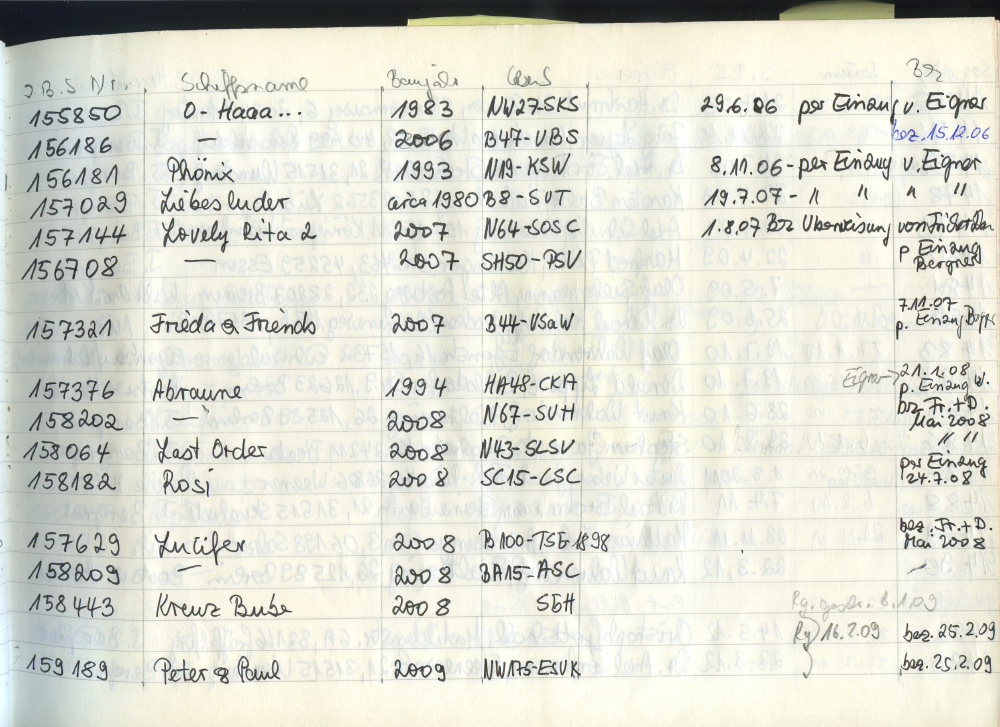 J.B.S Nr. Schiffsname Baujahr Bez
155850 O-Haga... 1983 NW27SKS 29.6.06 per Einzug v. Eigner
156186 — 2006 B47-VBS bez. 15.12.06
156181 Phönix 1993 N19-KSW 8.11.06 - per Einzug v. Eigner
157029 Liebesluder circa 1980 B8-SVT 19.7.07 - " " " "
157144 Lovely Rita 2 2007 N64-SOSC 1.8.07 Bez Überweisung von
156708 — 2007 SH50-PSV p Einzug
Bergner
7.11.07
157321 Frieda & Friends 2007 B44-VSaW p. Einzug
Eigner → 21.1.08
157376 Abraune 1994 HA48-CKA p. Einzug W.
158202 — " 2008 N67-SVH bez. Fr. + D.
Mai 2008
158064 Last Order 2008 N43-SLSV " "
158182 Rosi 2008 SC15-CSC per Einzug
24.7.08
157629 Lucifer 2008 B100-TSB 1898 bez. Fr. + D.
Mai 2008
158209 — 2008 BA15-ASC
158443 Kreuz Bube 2008 SGH Rg. gestr. B. 1.09
Rg) 16.2.09 bez. 25.2.09
159189 Peter & Paul 2009 NW175-ESVK bez. 25.2.09